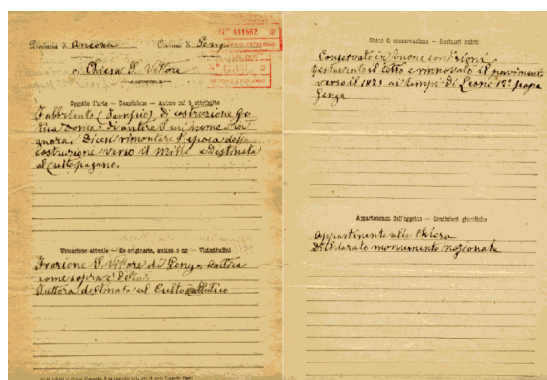 Nº 111682
Provincia di Ancona Comune di Genga
Chiesa S. Vittore
Oggetto d'arte — Descrizione — Autore cui è attribuito
Fabbricato (Tempio) di costruzione Go
tica Dorica di autore il cui nome s'i
gnora. Dicesi rimontare l'epoca della
costruzione verso il Mille e destinata
al culto pagano.
Ubicazione attuale — Se originaria, antica o no — Vicissitudini
Frazione S. Vittore di Genga
come sopra è detto
Tuttora destinata al Culto Cattolico
Stato di conservazione — Restauri subiti
Conservato in buone condizioni
il tetto e rinnovato il pavimento
verso il 18 ai tempi di Leone 12º papa
Genga
Appartenenza dell'oggetto — Condizioni giuridiche
Appartenente alla Chiesa
Dichiarato monumento nazionale